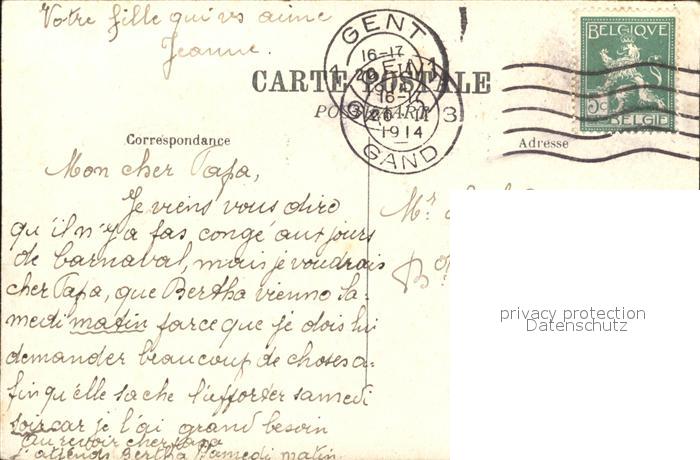 Votre fille qui vs aime
Jeanne.
GENT
16-17
20 II
1914
GENT
1
16-17
20 II
1914
3
GAND
BELGIQUE
5c
BELGIË
CARTE POSTALE
POSTKAART
Correspondance
Adresse
Mon cher Papa,
Je viens vous dire
qu'il n'y a pas congé aux jours
de Carnaval, mais je voudrais
cher Papa, que Bertha vienne sa-
medi matin parce que je dois lui
demander beaucoup de choses a-
fin qu'elle sache l'apporter samedi
soir car je l'ai grand besoin
Au revoir cher Papa
J'attends Bertha samedi matin
Mr
Bon
privacy protection
Datenschutz